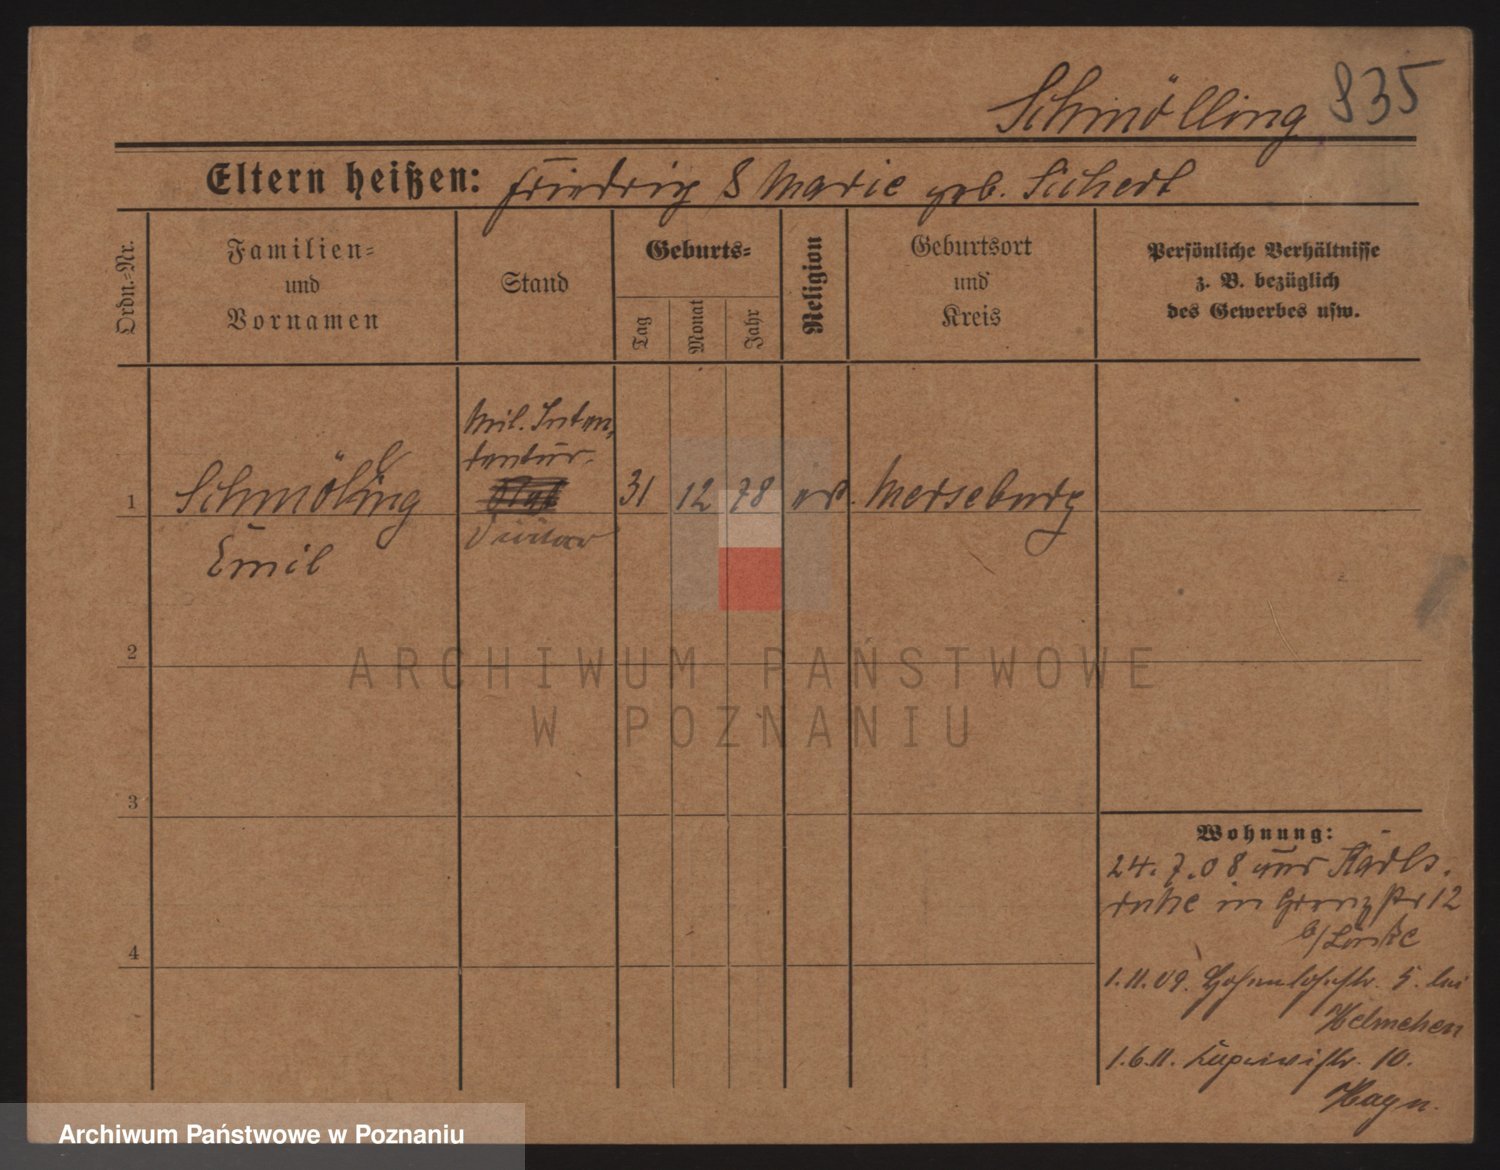 Schmölling 835
Eltern heißen: Friedrich & Marie geb. Sichert
Ordn.=Nr.
Familien=
und
Vornamen
Stand
Geburts=
Tag
Monat
Jahr
Religion
Geburtsort
und
Kreis
Persönliche Verhältnisse
z. B. bezüglich
des Gewerbes usw.
Mil. Inten,
dantur-
1 Schmölling 31 12 78 Merseburg
Emil
2
3
4
Wohnung:
24.7.08 aus Karls,
ruhe in Grenzstr 12
b/
1.11.09. 5. bei
Helmchen
1.6.11. 10.
Hayn.
ARCHIWUM PAŃSTWOWE
W POZNANIU
Archiwum Państwowe w Poznaniu